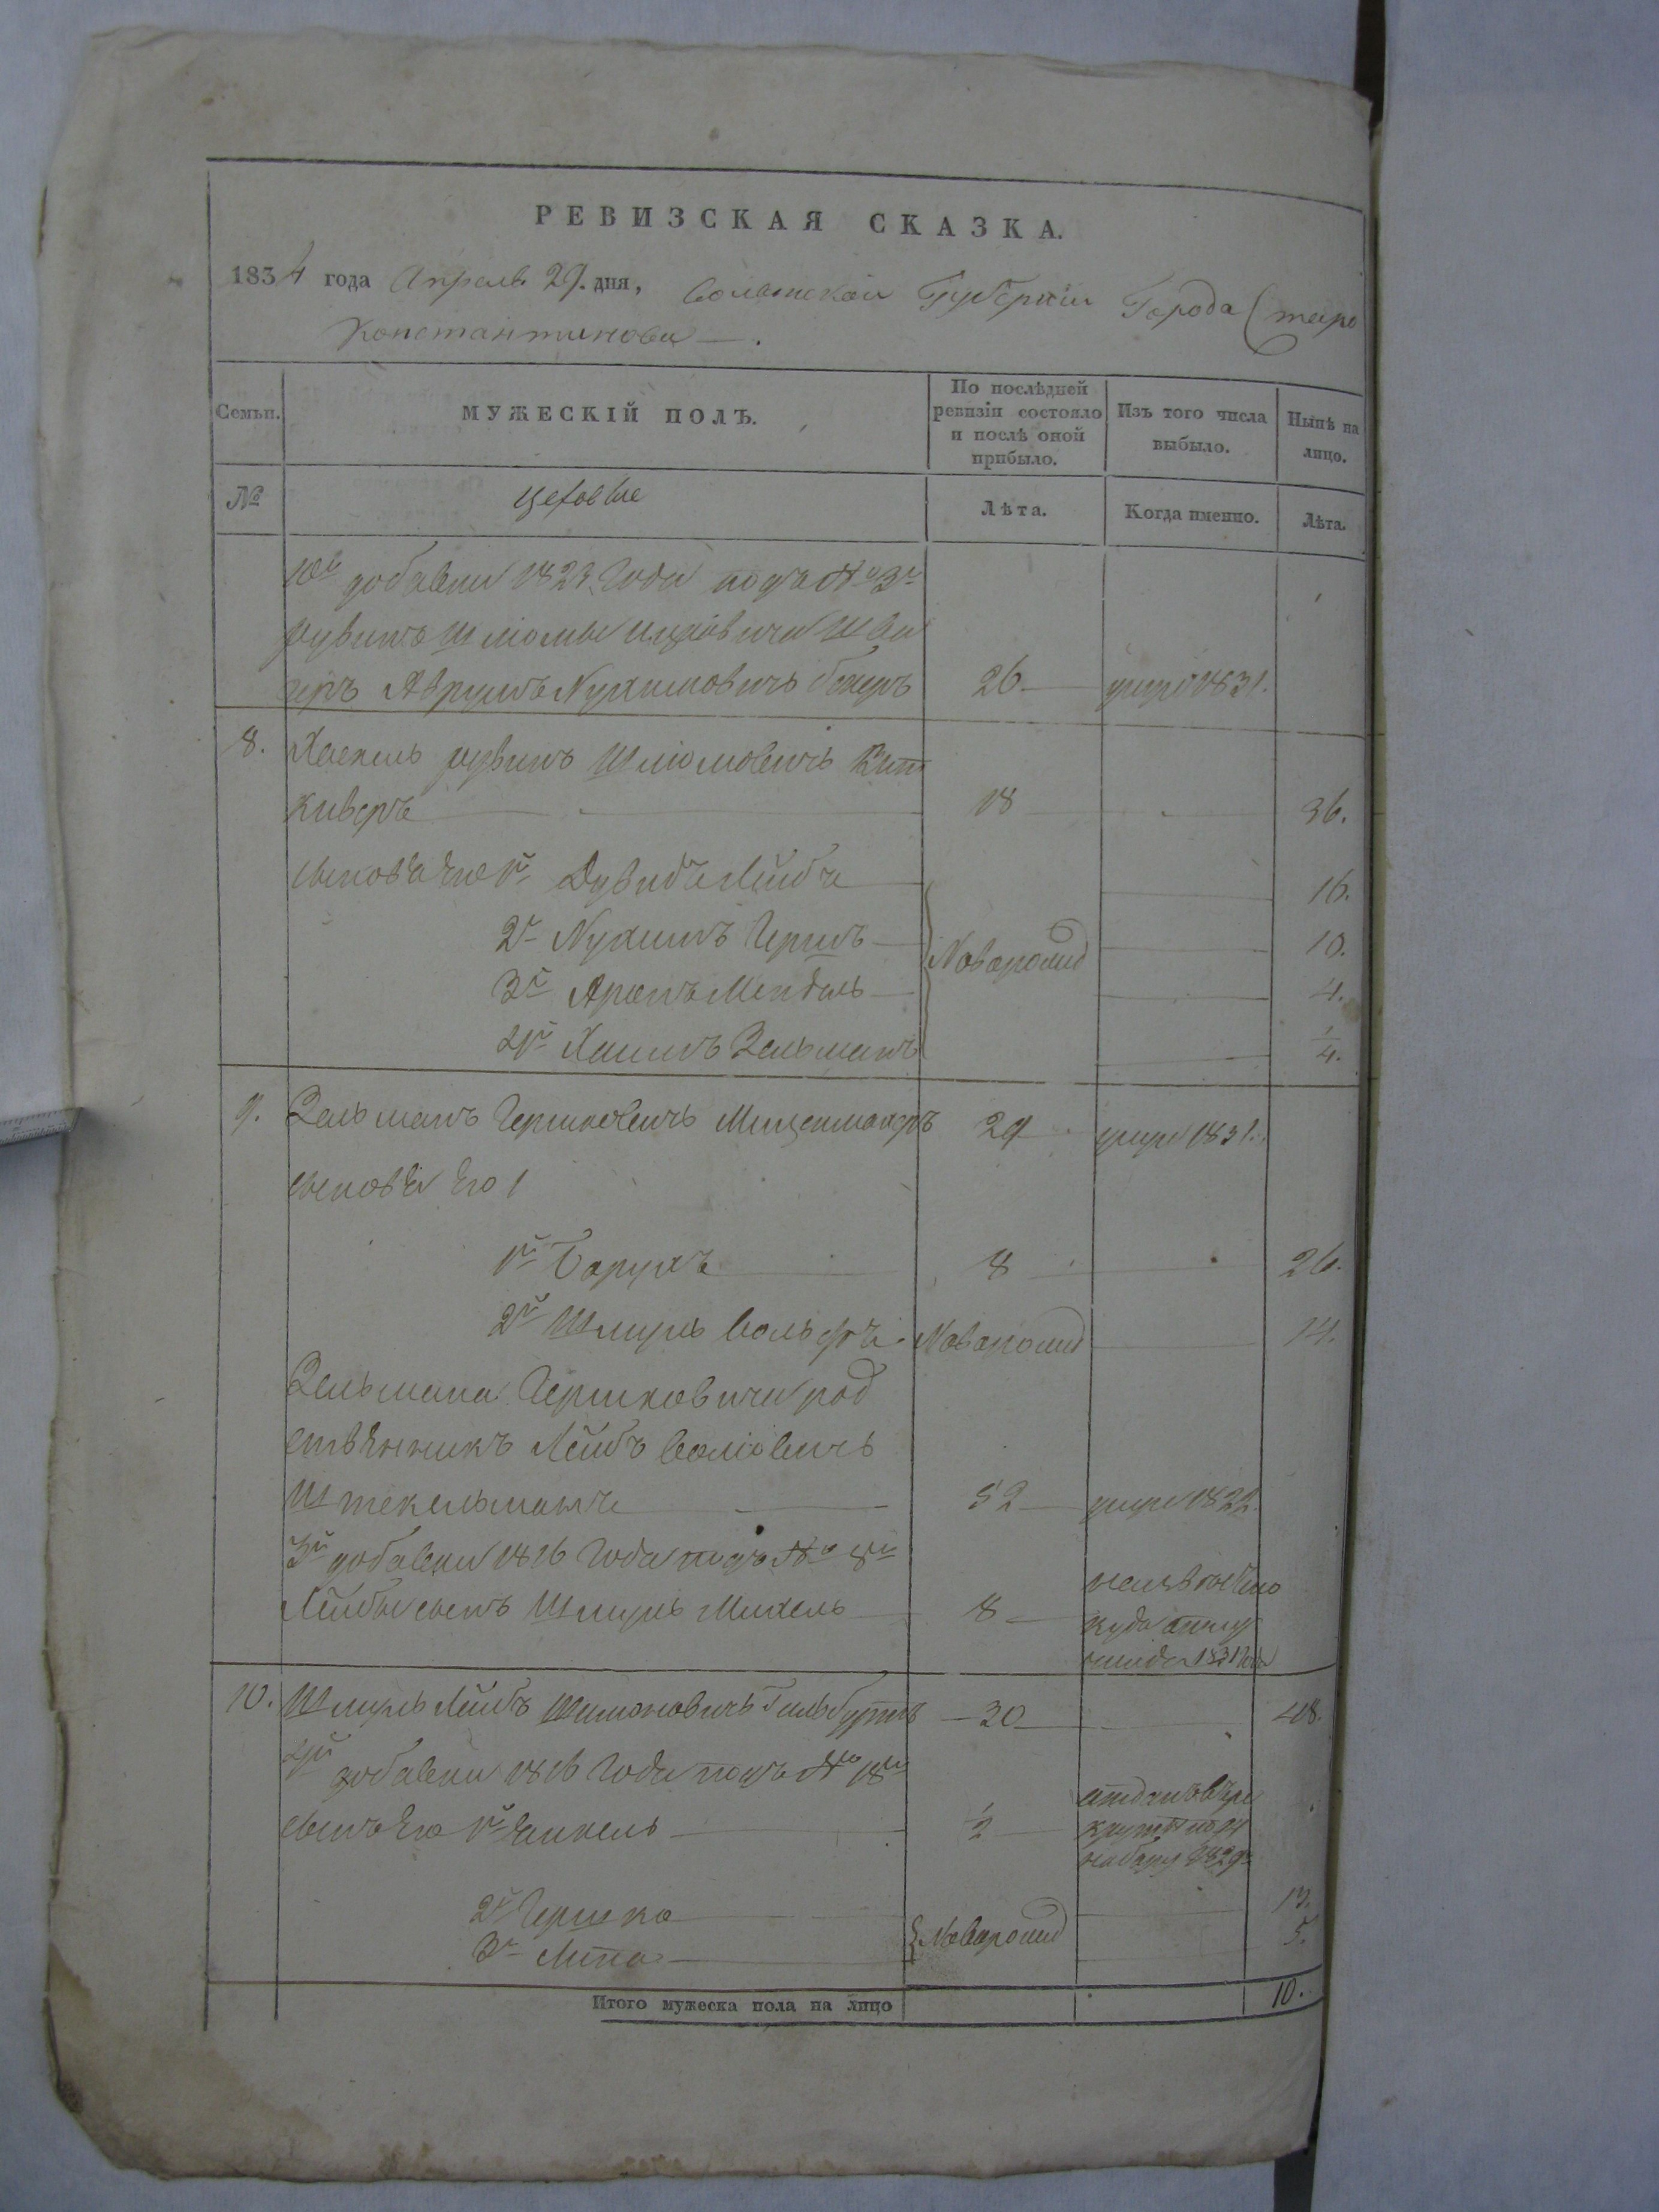 РЕВИЗСКАЯ СКАЗКА.
1834 года Апреля 29. дня, Волынской Губернiи Города Старо
Константинова — .
Семьи. МУЖЕСКІЙ ПОЛЪ. По послѣдней ревизіи состояло и послѣ оной прибыло. Изъ того числа выбыло. Нынѣ на лицо.
№ Цеховые Лѣта. Когда именно. Лѣта.
добавки 1823 Года подъ № 3м
рувинъ Шлiомы Ицковича
Аврумъ Нухимовичь 26 — умре 1831.
8. Хаскель рувинъ Шлiомовичь Кит
киверъ 18 36.
сыновья Его 1й Дувидъ Лейбъ 16.
2й Нухимъ Гершъ 10.
Новорожд
3й Аронъ Мендель 4.
4й Хаимъ Зельманъ 1/4.
9. Зельманъ Гершковичь 29 умре 1831.
сыновья Его 1
1й Борухъ 8 26.
2й Шмуль Вольфъ. Новорожд 14.
Зельмана Гершковича род
ственникъ Лейбъ Волiовичь
Штекельманъ 52 — умре 1822.
3й добавки 1816 Года подъ № 8м
Лейбы сынъ Шмуль Михель 8 — неизвѣстно
куда отлу
1831 Года
10. Шмуль Лейбъ Шимоновичь — 30 48.
4й добавки 1816 Года подъ № 18м
сынъ Его 1й Янкель 1/2 отданъ въ ре
круты
набора 1829
2й Гершко 13.
Новорожд
3й Липа 5.
Итого мужеска пола на лицо 10.